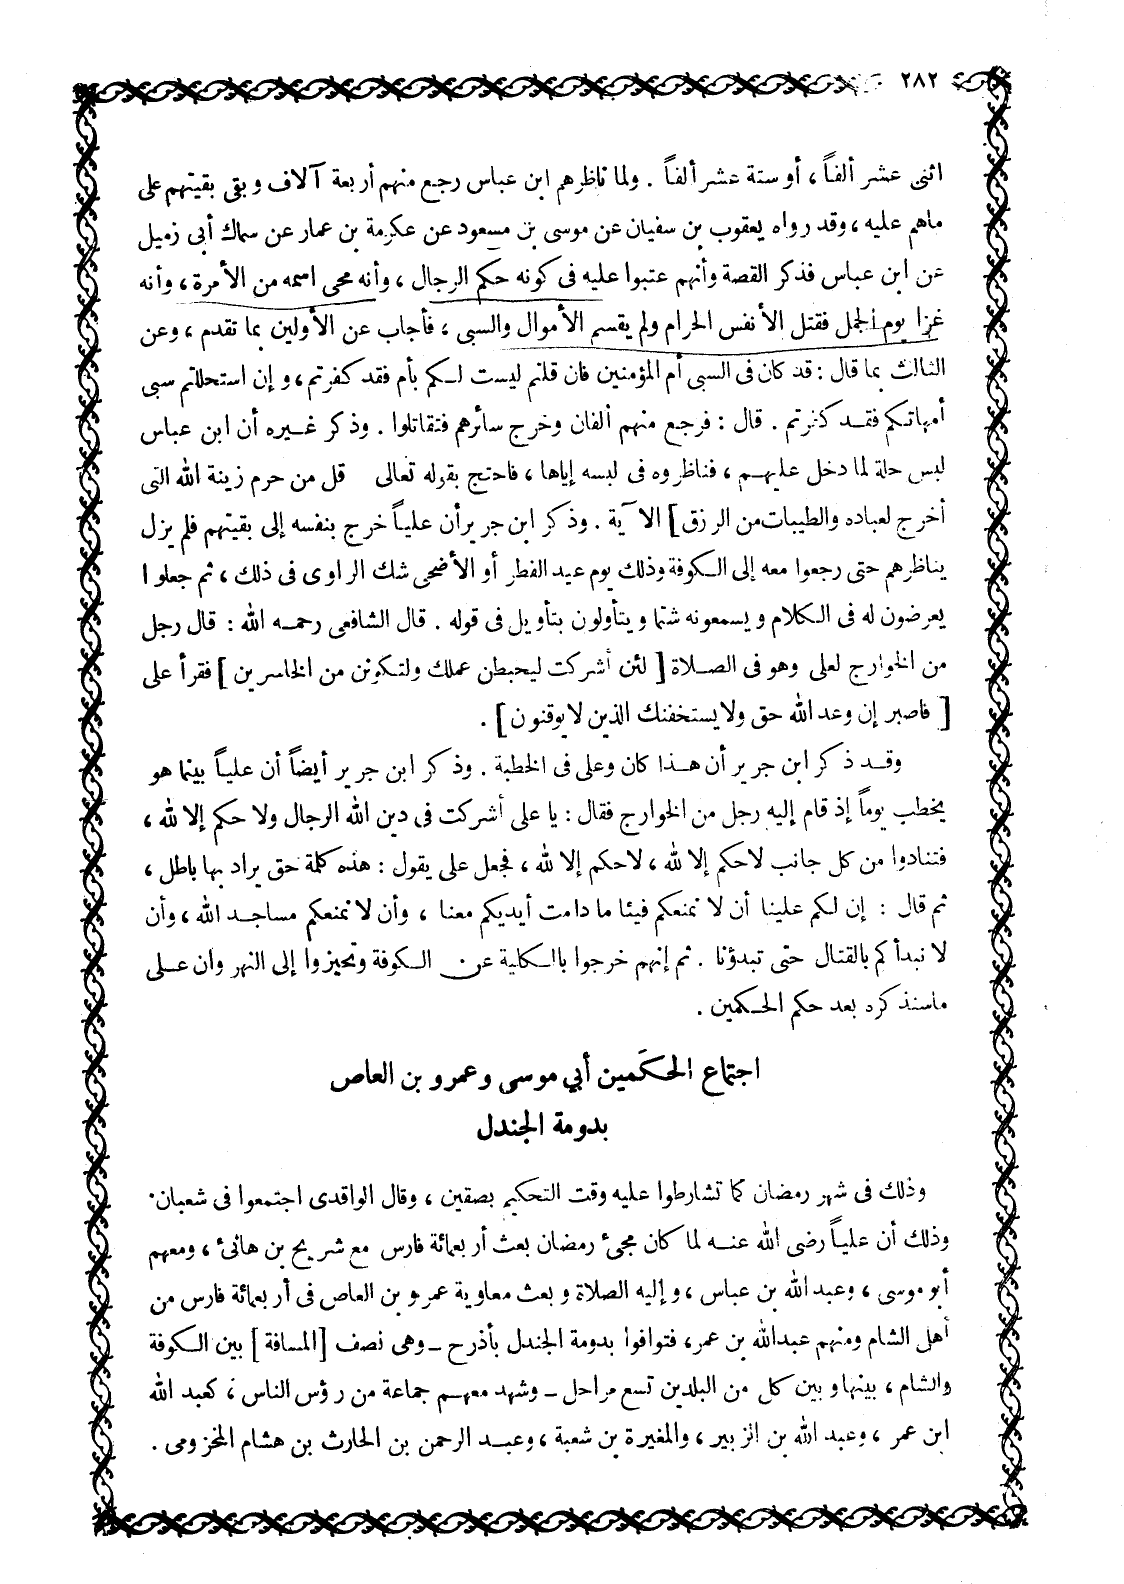 ٢٨٢
اثنى عشر ألفاً ، أو ستة عشر ألفاً . ولما ناظرهم ابن عباس رجع منهم أربعة آلاف و بقى بقيتهم على
ماهم عليه ، وقد رواه يعقوب بن سفيان عن موسى بن مسعود عن عكرمة بن عمار عن سماك أبى زميل
عن ابن عباس فذكر القصة وأنهم عتبوا عليه فى كونه حكم الرجال ، وأنه محى اسمه من الأمرة ، وأنه
غزا يوم الجمل فقتل الأنفس الحرام ولم يقسم الأموال والسبى ، فأجاب عن الأولين بما تقدم ، وعن
الثالث بما قال : قد كان فى السبى أم المؤمنين فان قلتم ليست لكم بأم فقد كفرتم ، و إن استحللتم سبى
أمهاتكم فقد كفرتم . قال : فرجع منهم ألفان وخرج سائرهم فتقاتلوا . وذكر غيره أن ابن عباس
لبس حلة لما دخل عليهم ، فناظروه فى لبسه إياها ، فاحتج بقوله تعالى قل من حرم زينة الله التى
أخرج لعباده والطيبات من الرزق ] الآية . وذكر ابن جرير أن علياً خرج بنفسه إلى بقيتهم فلم يزل
يناظرهم حتى رجعوا معه إلى الكوفة وذلك يوم عيد الفطر أو الأضحى شك الراوى فى ذلك ، ثم جعلوا
يعرضون له فى الكلام و يسمعونه شتما و يتأولون بتأويل فى قوله . قال الشافعى رحمه الله : قال رجل
من الخوارج لعلى وهو فى الصلاة [ لئن أشركت ليحبطن عملك ولتكونن من الخاسرين ] فقرأ على
[ فاصبر إن وعد الله حق ولا يستخفنك الذين لا يوقنون ] .
وقد ذكر ابن جرير أن هذا كان وعلى فى الخطبة . وذكر ابن جرير أيضاً أن علياً بينما هو
يخطب يوماً إذ قام إليه رجل من الخوارج فقال : يا على أشركت فى دين الله الرجال ولا حكم إلا لله ،
فتنادوا من كل جانب لا حكم إلا لله ، لا حكم إلا لله ، فجعل على يقول : هذه كلمة حق يراد بها باطل ،
ثم قال : إن لكم علينا أن لا نمنعكم فيئا ما دامت أيديكم معنا ، وأن لا نمنعكم مساجد الله ، وأن
لا نبدأكم بالقتال حتى تبدؤنا . ثم إنهم خرجوا بالكلية عن الكوفة وتحيزوا إلى النهروان على
ماسنذكره بعد حكم الحكمين .
اجتماع الحكَمين أبي موسى وعمرو بن العاص
بدومة الجندل
وذلك فى شهر رمضان كما تشارطوا عليه وقت التحكيم بصفين ، وقال الواقدى اجتمعوا فى شعبان .
وذلك أن علياً رضى الله عنه لما كان مجىء رمضان بعث أربعمائة فارس مع شريح بن هانئ ، ومعهم
أبو موسى ، وعبد الله بن عباس ، و إليه الصلاة و بعث معاوية عمرو بن العاص فى أربعمائة فارس من
أهل الشام ومنهم عبد الله بن عمر ، فتوافوا بدومة الجندل بأذرح ـ وهى نصف [المسافة ] بين الكوفة
والشام ، بينها و بين كل من البلدين تسع مراحل ـ وشهد معهم جماعة من رؤس الناس ، كعبد الله
ابن عمر ، وعبد الله بن الزبير ، والمغيرة بن شعبة ، وعبد الرحمن بن الحارث بن هشام المخزومى .